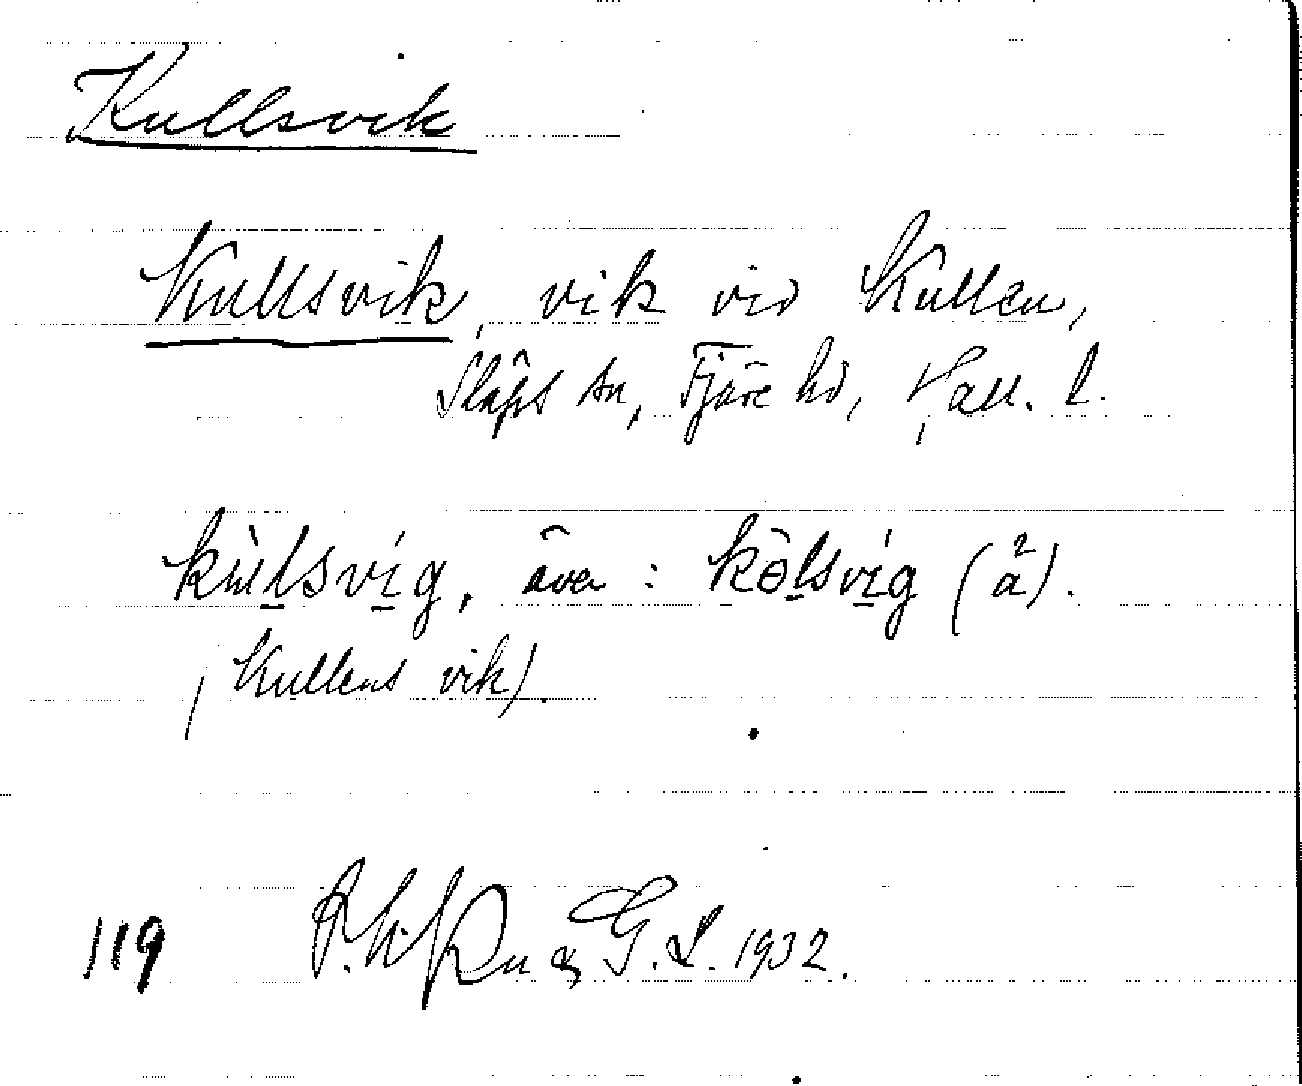 Kullsvik
Kullsvik, vik vid Kullen,
Släps sn, Fjäre hd, Hall. l.
kùlsvíg, även: kòlsvíg (å²).
(Kullens vik).
119 G. L. 1932.